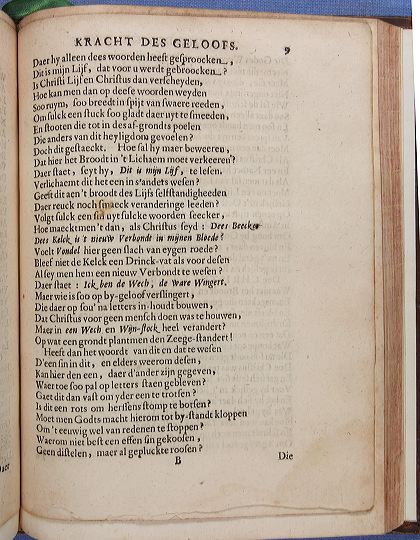 KRACHT DES GELOOFS. 9
Daer hy alleen dees woorden heeft gesproocken,
Dit is mijn Lijf, dat voor u werdt gebroocken?
Is Christi Lijf en Christus dan verscheyden,
Hoe kan men dan op deese woorden weyden
Soo ruym, soo breedt in spijt van swaere reeden,
Om sulck een stuck soo gladt daer uyt te smeeden,
En stooten die tot in des af-gronds poelen
Die anders van dit heyligdom gevoelen?
Doch dit gestaeckt. Hoe sal hy maer beweeren,
Dat hier het Broodt in 't Lichaem moet verkeeren?
Daer staet, seyt hy, Dit is mijn Lijf, te lesen.
Verlichaemt dit het een in 's anders wesen?
Geeft dit aen 't broodt des Lijfs selfstandigheeden
Daer reuck noch smaeck veranderinge leeden?
Volgt sulck een sin uyt sulcke woorden seecker,
Hoe maeckt men 't dan, als Christus seyd: Dees Beecker
Dees Kelck is 't nieuw Verbondt in mijnen Bloede?
Voelt Vondel hier geen slach van eygen roede?
Bleef niet de Kelck een Drinck-vat als voor desen
Al sey men hem een nieuw Verbondt te wesen?
Daer staet: Ick ben de Wech, de Ware Wingert.
Maer wie is soo op by-geloof verslingert,
Die daer op sou' na letters in-houdt bouwen,
Dat Christus voor geen mensch doen was te houwen,
Maer in een Wech en Wijn-stock heel verandert?
Op wat een grondt plant men den Zeege-standert!
Heeft dan het woordt van dit en dat te wesen
D'een sin in dit, en elders weerom desen,
Kan hier den een, daer d'ander zijn gegeven,
Waer toe soo pal op letters staen gebleven?
Gaet dit dan vast om yder een te trotsen?
Is dit een rots om herssens stomp te botsen?
Moet men Godts macht hierom tot by-standt kloppen
Om 't eeuwig wel van redenen te stoppen?
Waerom niet best een effen sin gekoosen,
Geen distelen, maer al gepluckte roosen?
B Die